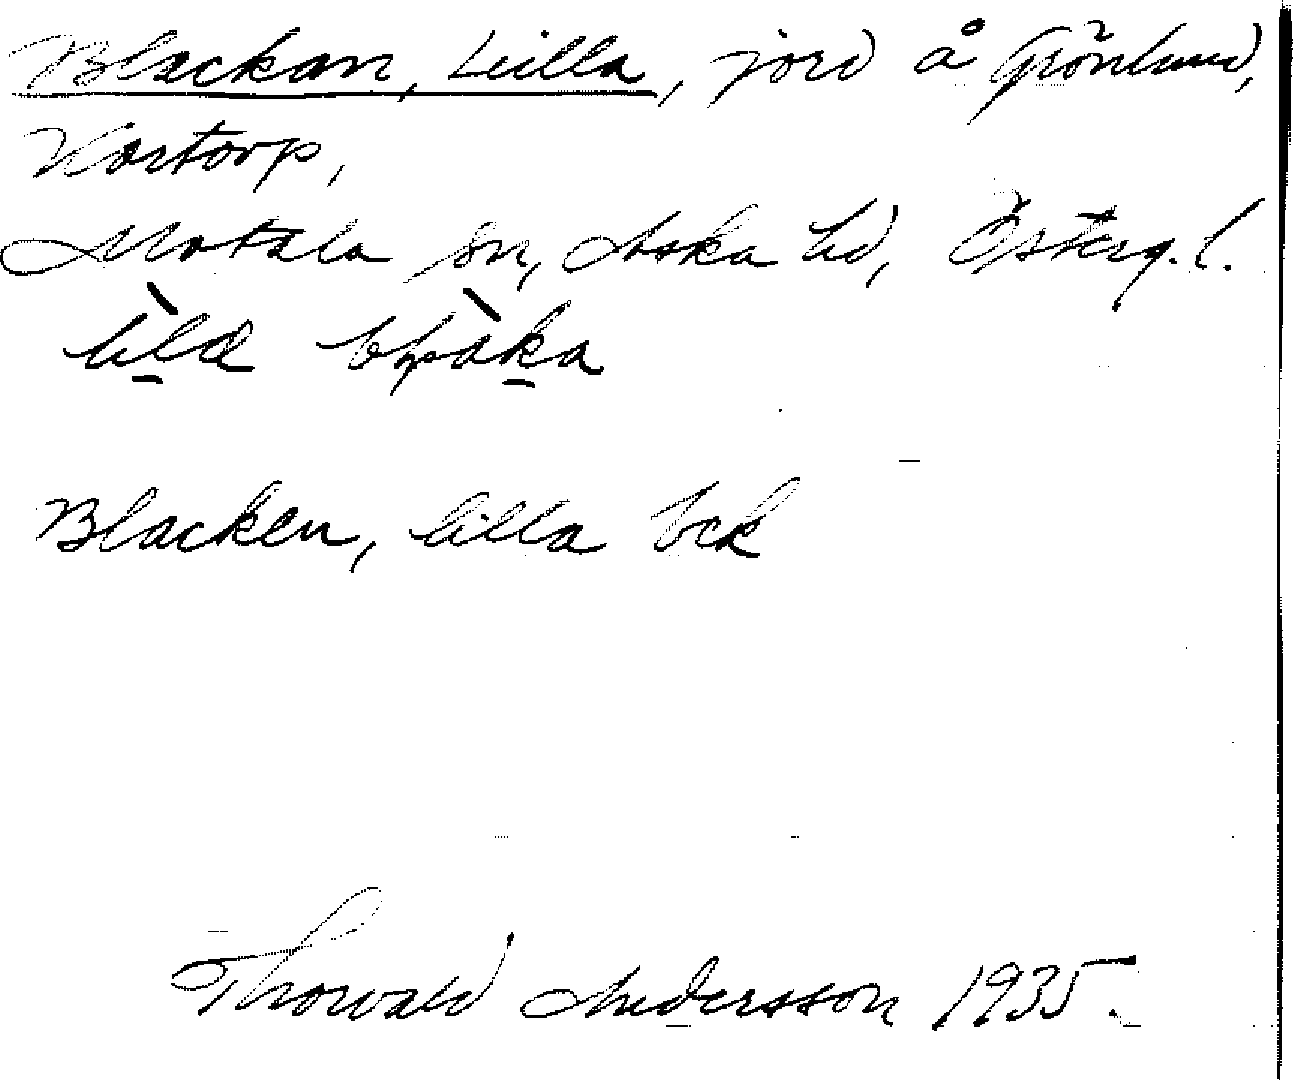 Blackan, Lilla, jord å Grönlund,
Kortorp,
Motala sn, Aska hd, Österg. l.
Blacken, lilla bck
Thorvald Andersson 1935.